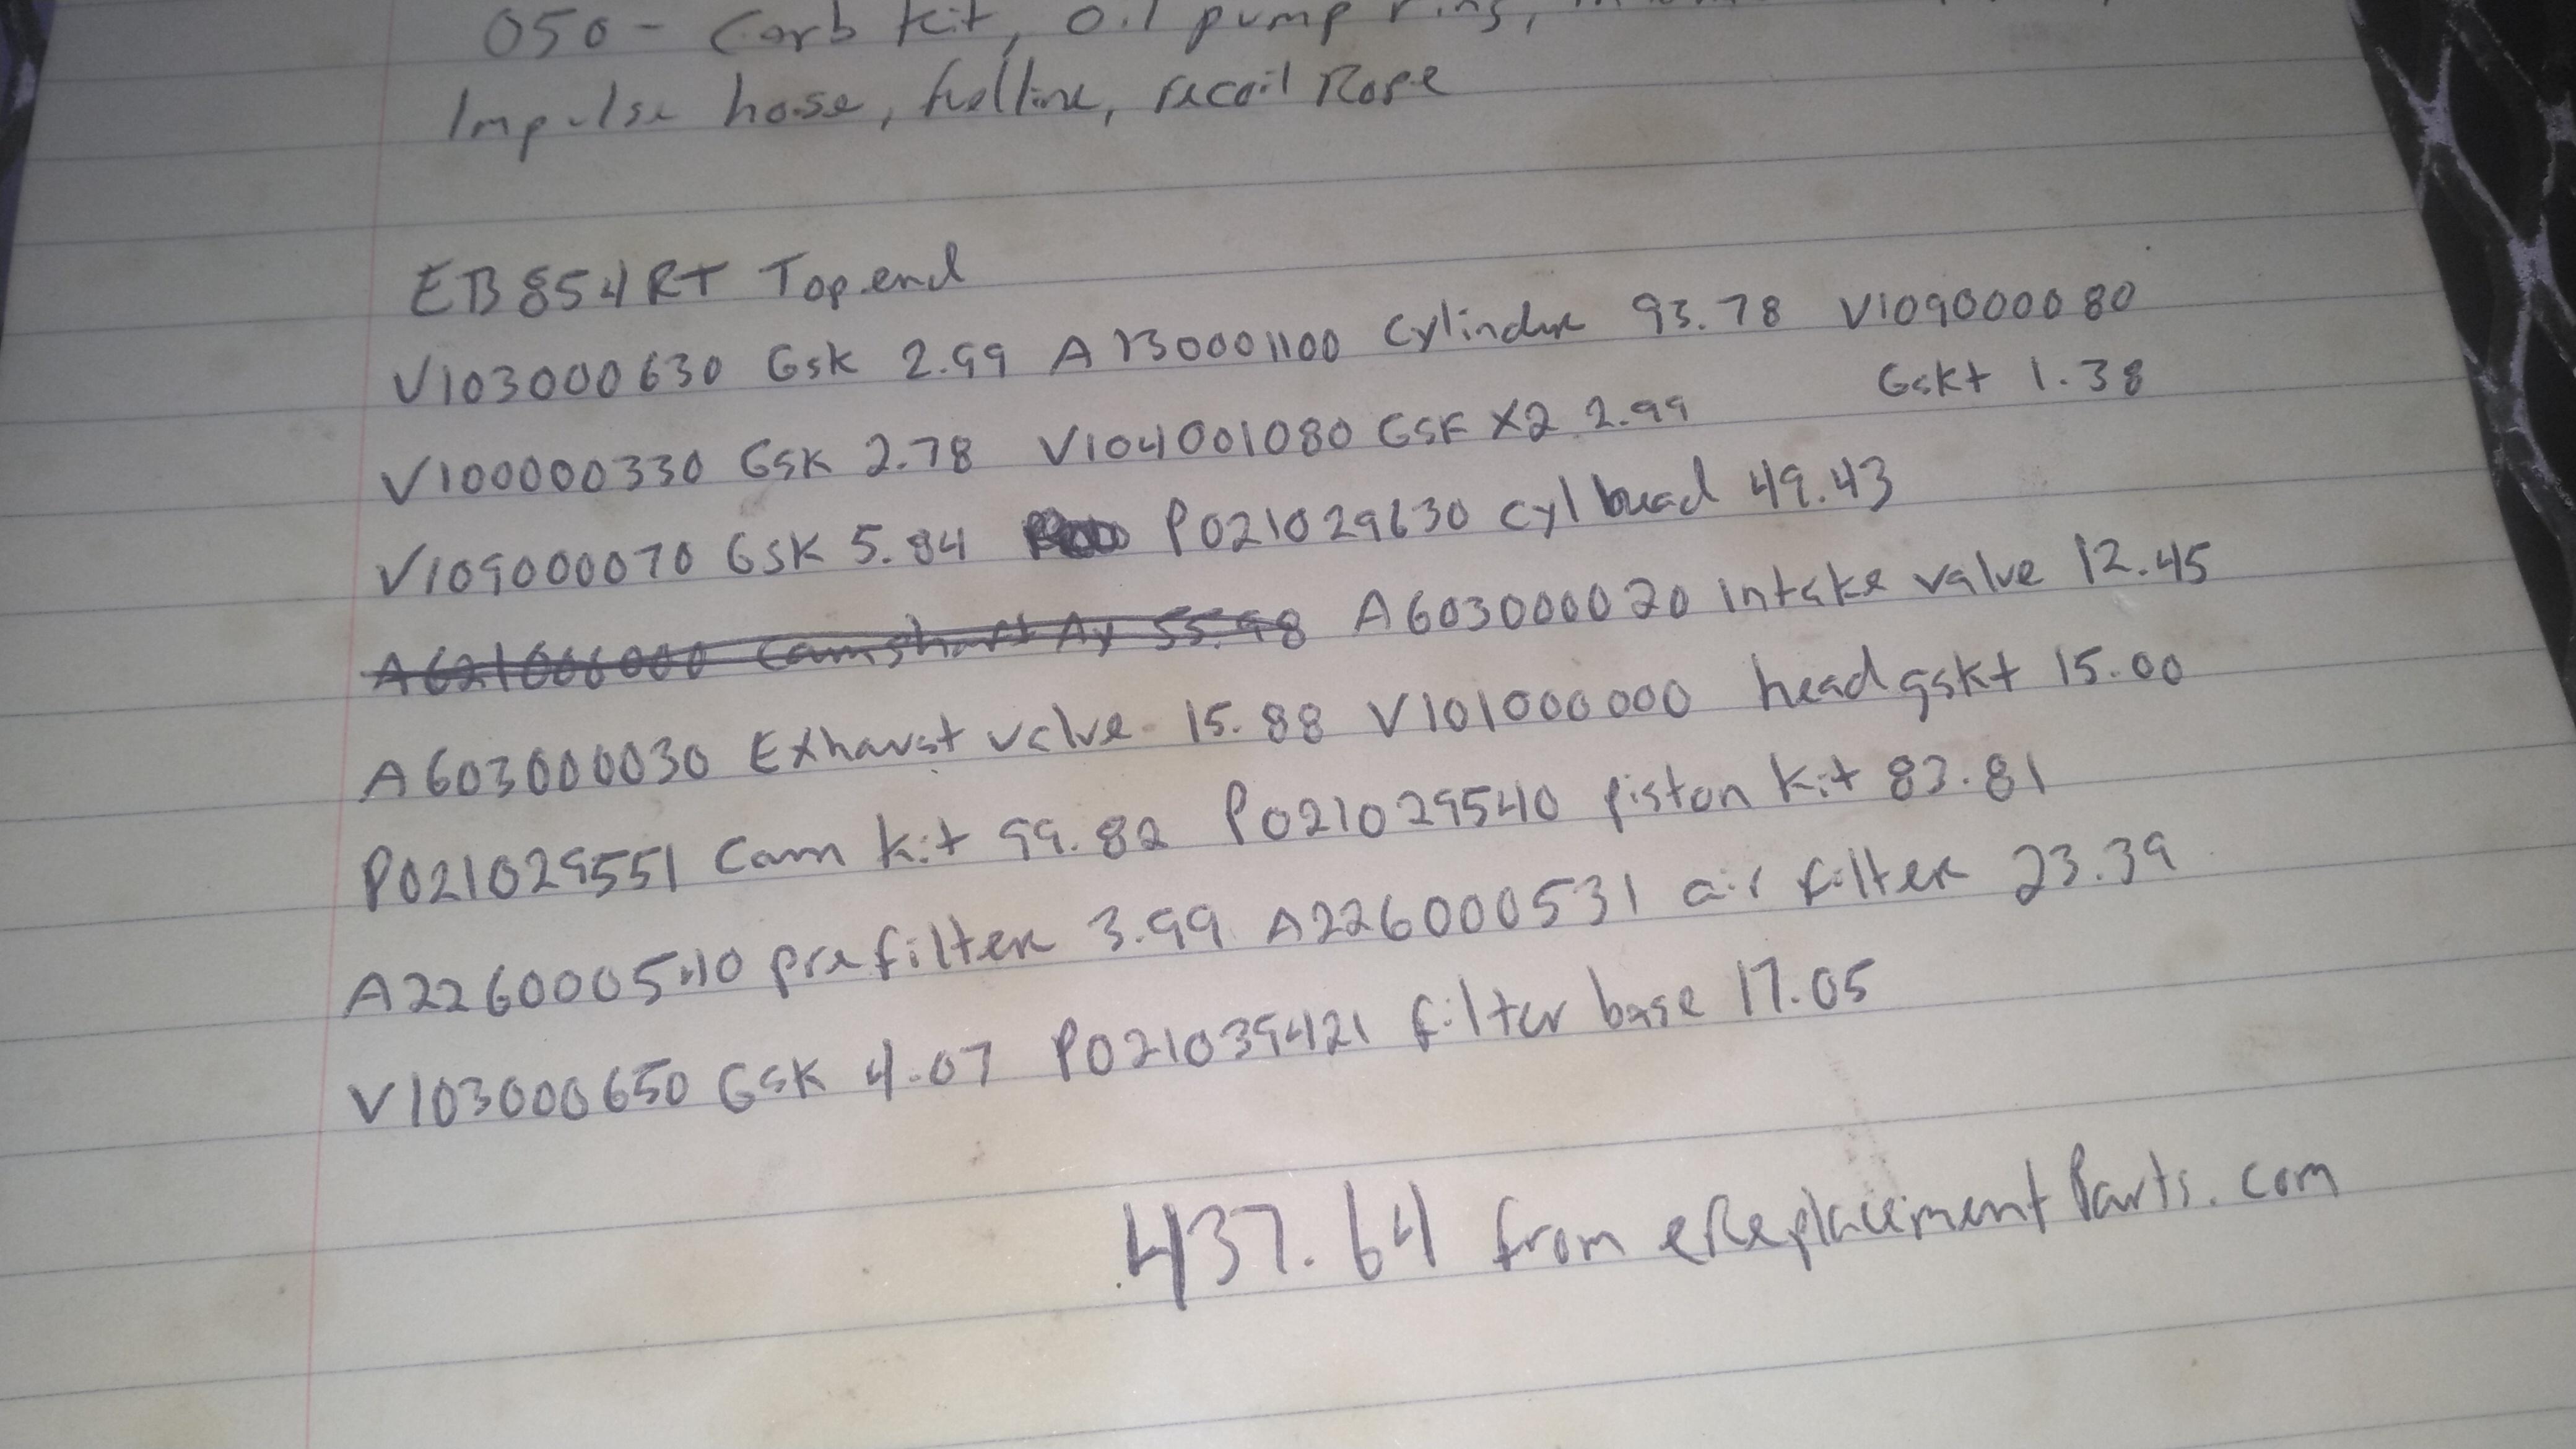 050 - Carb kit, oil pump ring,
Impulse hose, fuelline, recoil Rope
EB854RT Top end
V103000630 Gsk 2.99 A130001100 Cylinder 93.78 V109000080
Gskt 1.38
V100000330 Gsk 2.78 V104001080 GSK X2 2.99
V109000070 GSK 5.84 P021029630 Cyl head 49.43
A621006000 Camshaft Ay 55.98 A603000020 intake valve 12.45
A603000030 Exhaust valve 15.88 V101000000 head gskt 15.00
P021029551 Cam kit 99.82 P021029540 piston kit 83.81
A226000540 prefilter 3.99 A226000531 air filter 23.39
V103000650 GSK 4.07 P021039421 filter base 17.05
437.64 from eReplacementParts.com